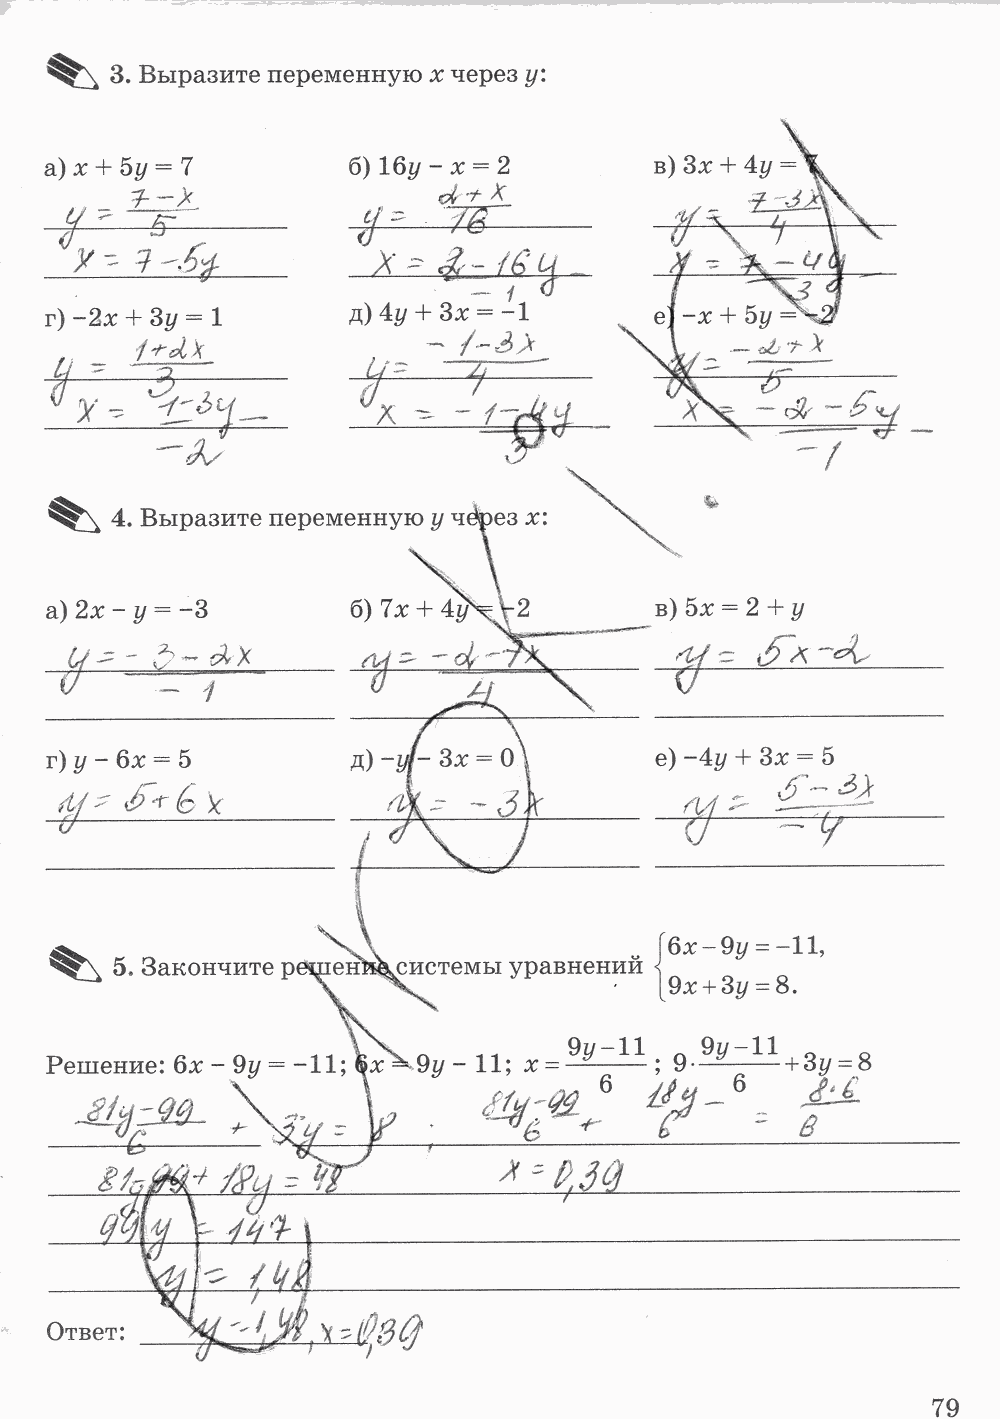 3. Выразите переменную x через y:
а) x + 5y = 7 б) 16y − x = 2 в) 3x + 4y = 7
y = (7−x)/5 y = (2+x)/16 y = (7−3x)/4
x = 7−5y x = (2−16y)/(−1) x = (7−4y)/3
г) −2x + 3y = 1 д) 4y + 3x = −1 е) −x + 5y = −2
y = (1+2x)/3 y = (−1−3x)/4 y = (−2+x)/5
x = (1−3y)/(−2) x = (−1−4y)/3 x = (−2−5y)/(−1)
4. Выразите переменную y через x:
а) 2x − y = −3 б) 7x + 4y = −2 в) 5x = 2 + y
y = (−3−2x)/(−1) y = (−2−7x)/4 y = 5x−2
г) y − 6x = 5 д) −y − 3x = 0 е) −4y + 3x = 5
y = 5+6x y = −3x y = (5−3x)/(−4)
5. Закончите решение системы уравнений {6x − 9y = −11, 9x + 3y = 8.
Решение: 6x − 9y = −11; 6x = 9y − 11; x = (9y−11)/6; 9·(9y−11)/6 + 3y = 8
(81y−99)/6 + 3y = 8 ; (81y−99)/6 + 18y/6 − = 8·6/8
81y−99+18y = 48 x = 0,39
99y = 147
y = 1,48
Ответ: y−1,48, x=0,39
79